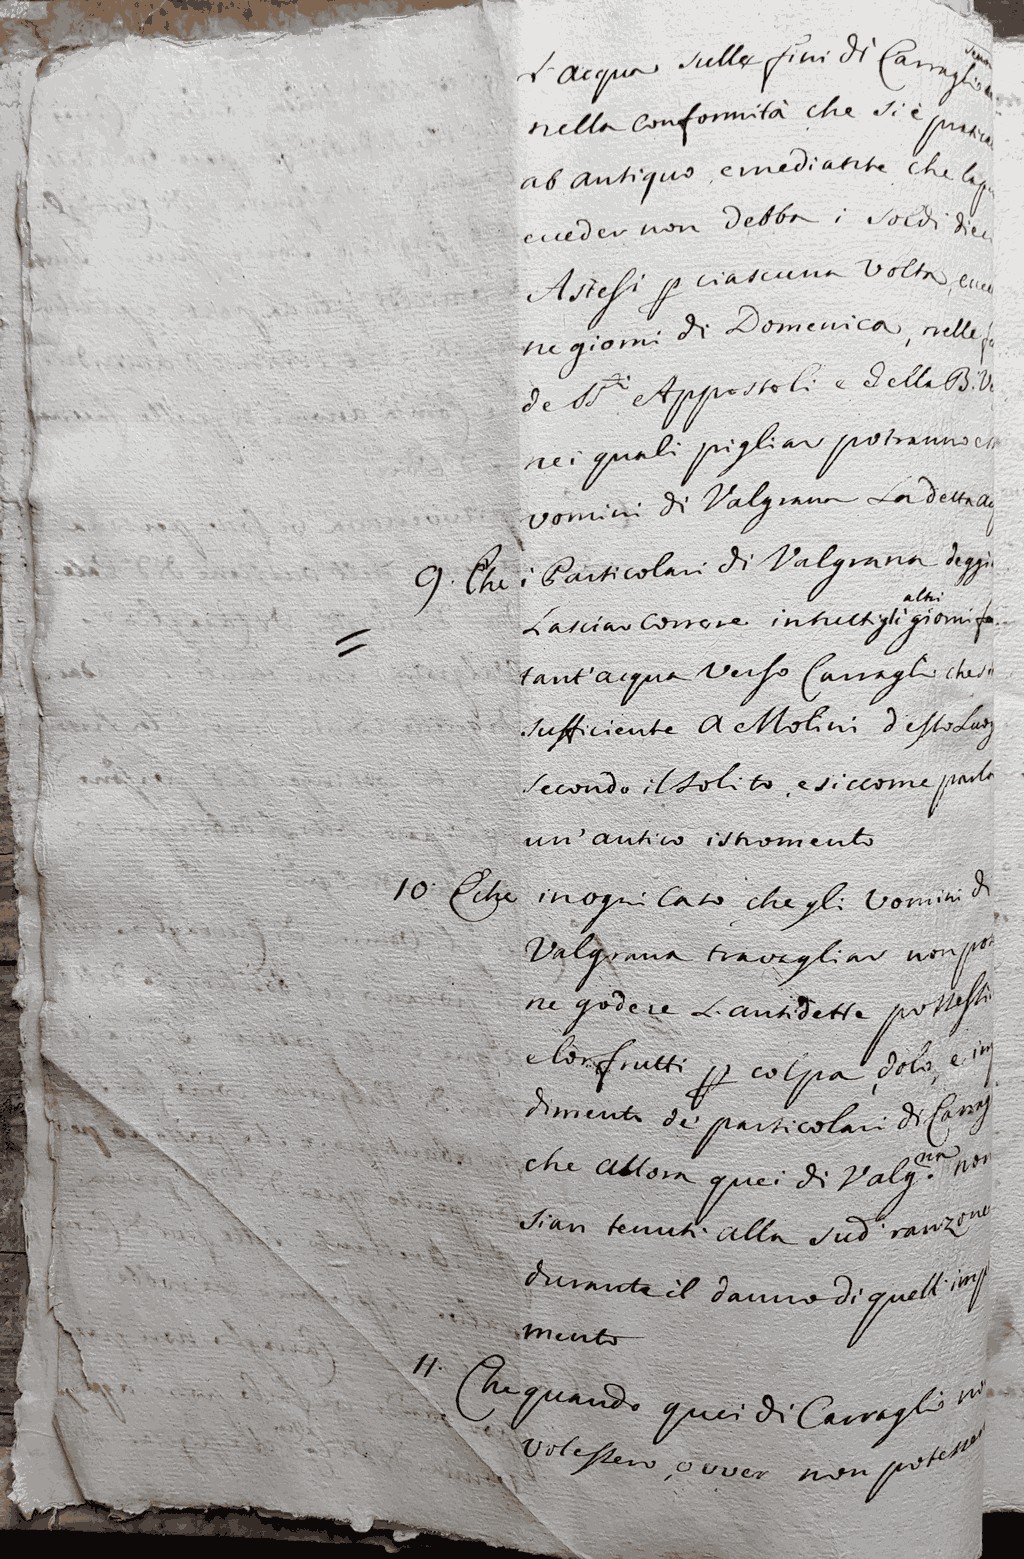 L'acqua sulle fini di Carraglio
nella conformità che si è pratica
ab antiquo, e mediante che la
cceder non debba i soldi diec
Astesi p ciascuna volta, ecce
ne giorni di Domenica, nelle f
de SSti Appostoli e della B. Ve
nei quali pigliar potranno
uomini di Valgrana La detta ac
9. Che i Particolari di Valgrana deggi
Lasciar Correre in tutti gli altri giorni fe
tant'acqua verso Carragli che
sufficiente a Molini d'esso Luog
secondo il solito, e siccome parla
un' antico istromento
10. E che in ogni Caso che gli Uomini di
Valgrana travagliar non pot
ne godere L'antidette possessi
e lor frutti p colpa, dolo, e im
dimento de' particolari di Carrag
che allora quei di Valg.na non
sian tenuti alla sud ranzone
durante il danno di quell' imp
mento
11. Che quando quei di Carraglio no
volessero, ouver non potesse